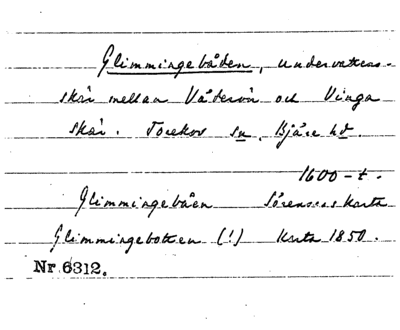 Glimmingebåden, undervattens-
skär mellan Väderön och Vinga
skär. Torekov sn, Bjäre hd.
1600-t.
Glimmingebåen Sörensens karta
Glimmingebotten (!) Karta 1850.
Nr. 6312.